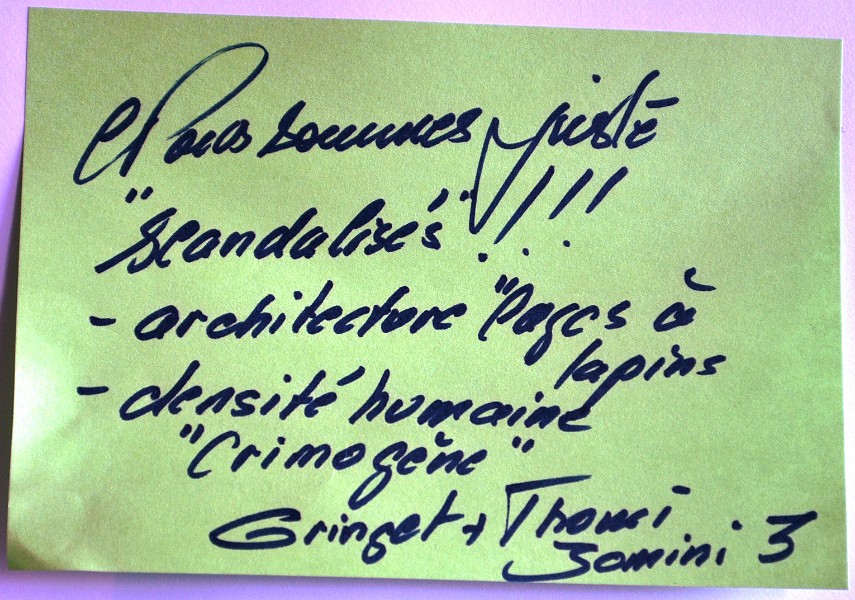 Nous sommes juste
"Scandalisés" !!!
- architecture "Cages à
lapins
- densité humaine
"Crimogène"
Gringet + Thomi
Jomini 3